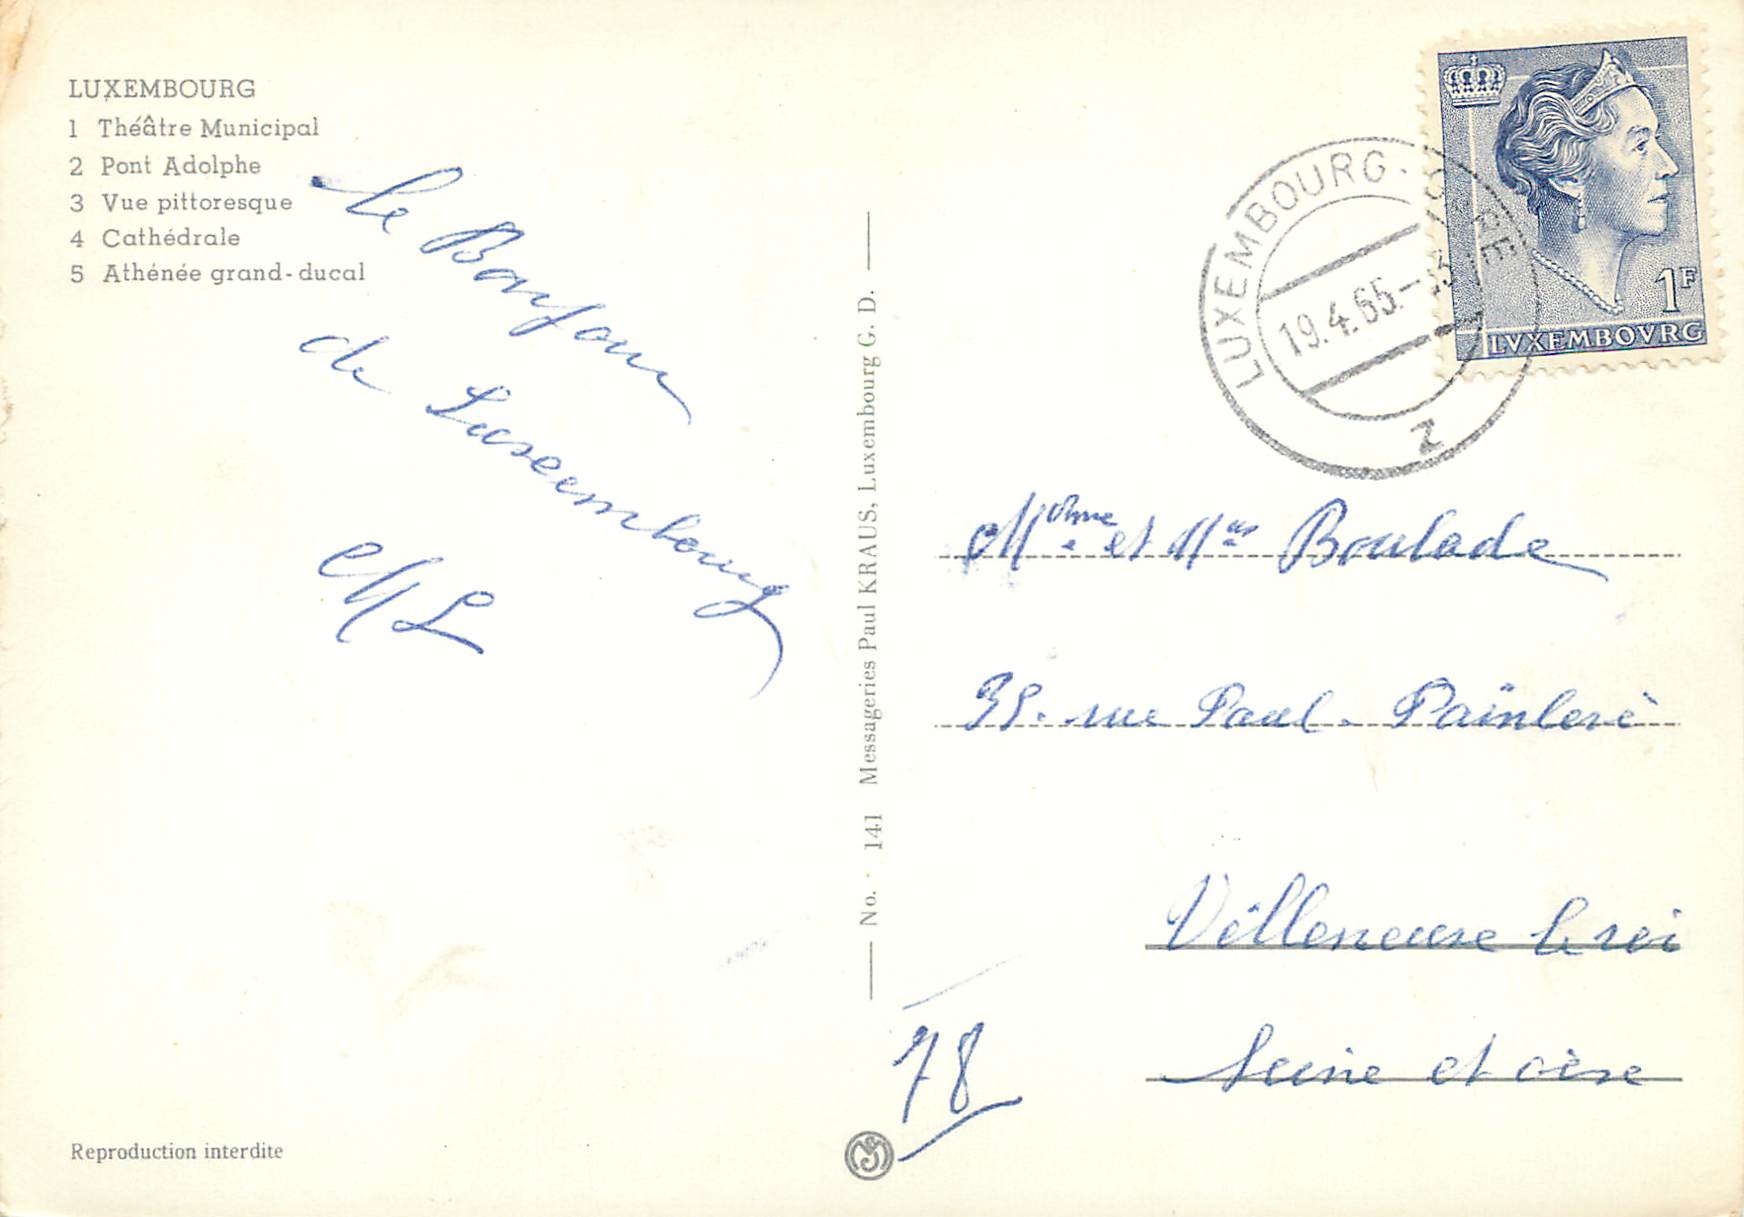 LUXEMBOURG
1 Théâtre Municipal
2 Pont Adolphe
3 Vue pittoresque
4 Cathédrale
5 Athénée grand-ducal
le Bonjour
de Luxembourg
ML
Reproduction interdite
No. 141 Messageries Paul KRAUS, Luxembourg G. D.
LUXEMBOURG-
19.4.65.-
2
1F
LVXEMBOVRG
et Boulade
rue Paul - Painlevé
Villeneuve le roi
Seine et oise
78